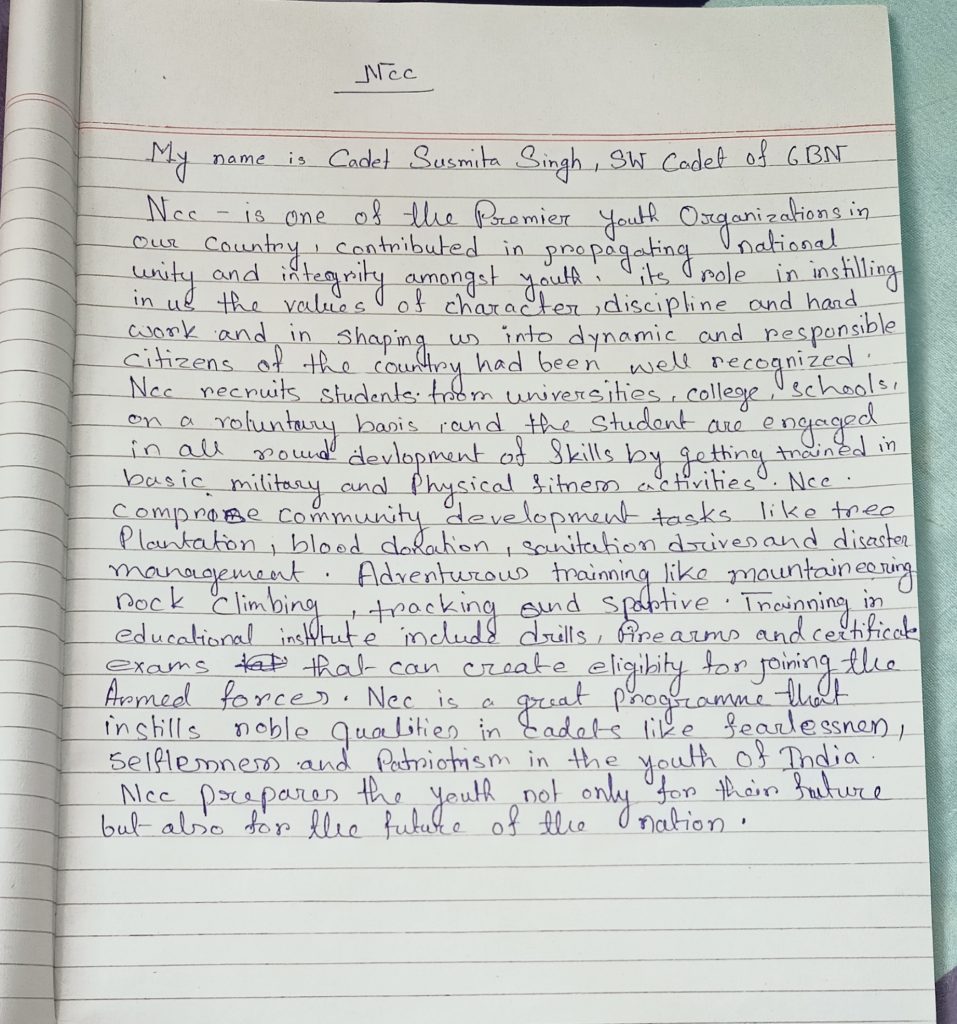 Ncc
My name is Cadet Susmita Singh, SW Cadet of GBN
Ncc - is one of the Premier Youth Organizations in
our Country, contributed in propagating national
unity and integrity amongst youth. its role in instilling
in us the values of character, discipline and hard
work and in shaping us into dynamic and responsible
citizens of the country had been well recognized.
Ncc recruits students from universities, college, schools,
on a voluntary basis, and the student are engaged
in all round devlopment of Skills by getting trained in
basic military and Physical fitness activities. Ncc.
comprose community development tasks like tree
Plantation, blood donation, sanitation drives and disaster
management. Adventurous trainning like mountaineering
rock climbing, tracking and Trainning in
educational institute include drills, firearms and certificate
exams that can create eligibity for joining the
Armed forces. Ncc is a great Programme that
instills noble qualities in cadets like fearlessness,
selflessness and Patriotism in the youth of India.
Ncc prepares the youth not only for their future
but also for the future of the nation.